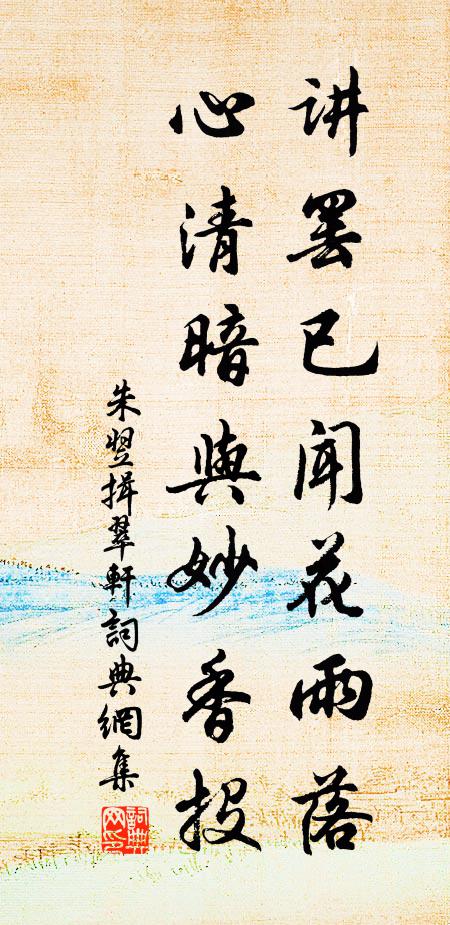 讲罢已闻花雨落
心清暗與妙香投
朱翌揖翠軒詞典網集
詞典网印